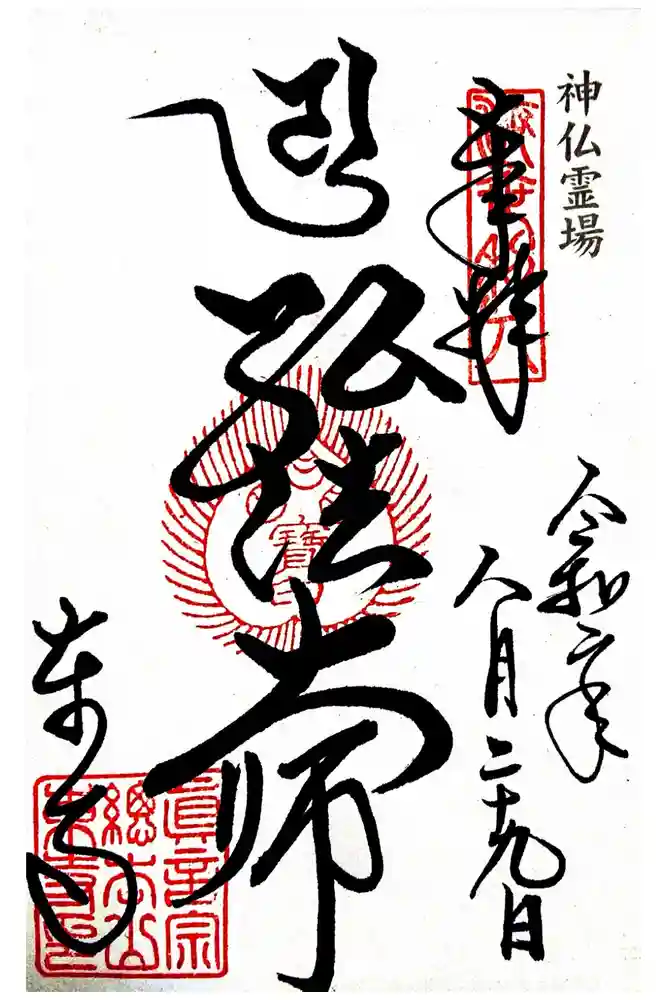 神仏霊場
奉拝
令和二年
八月二十九日
弘法大師
東寺
眞言宗
總本山
東寺印